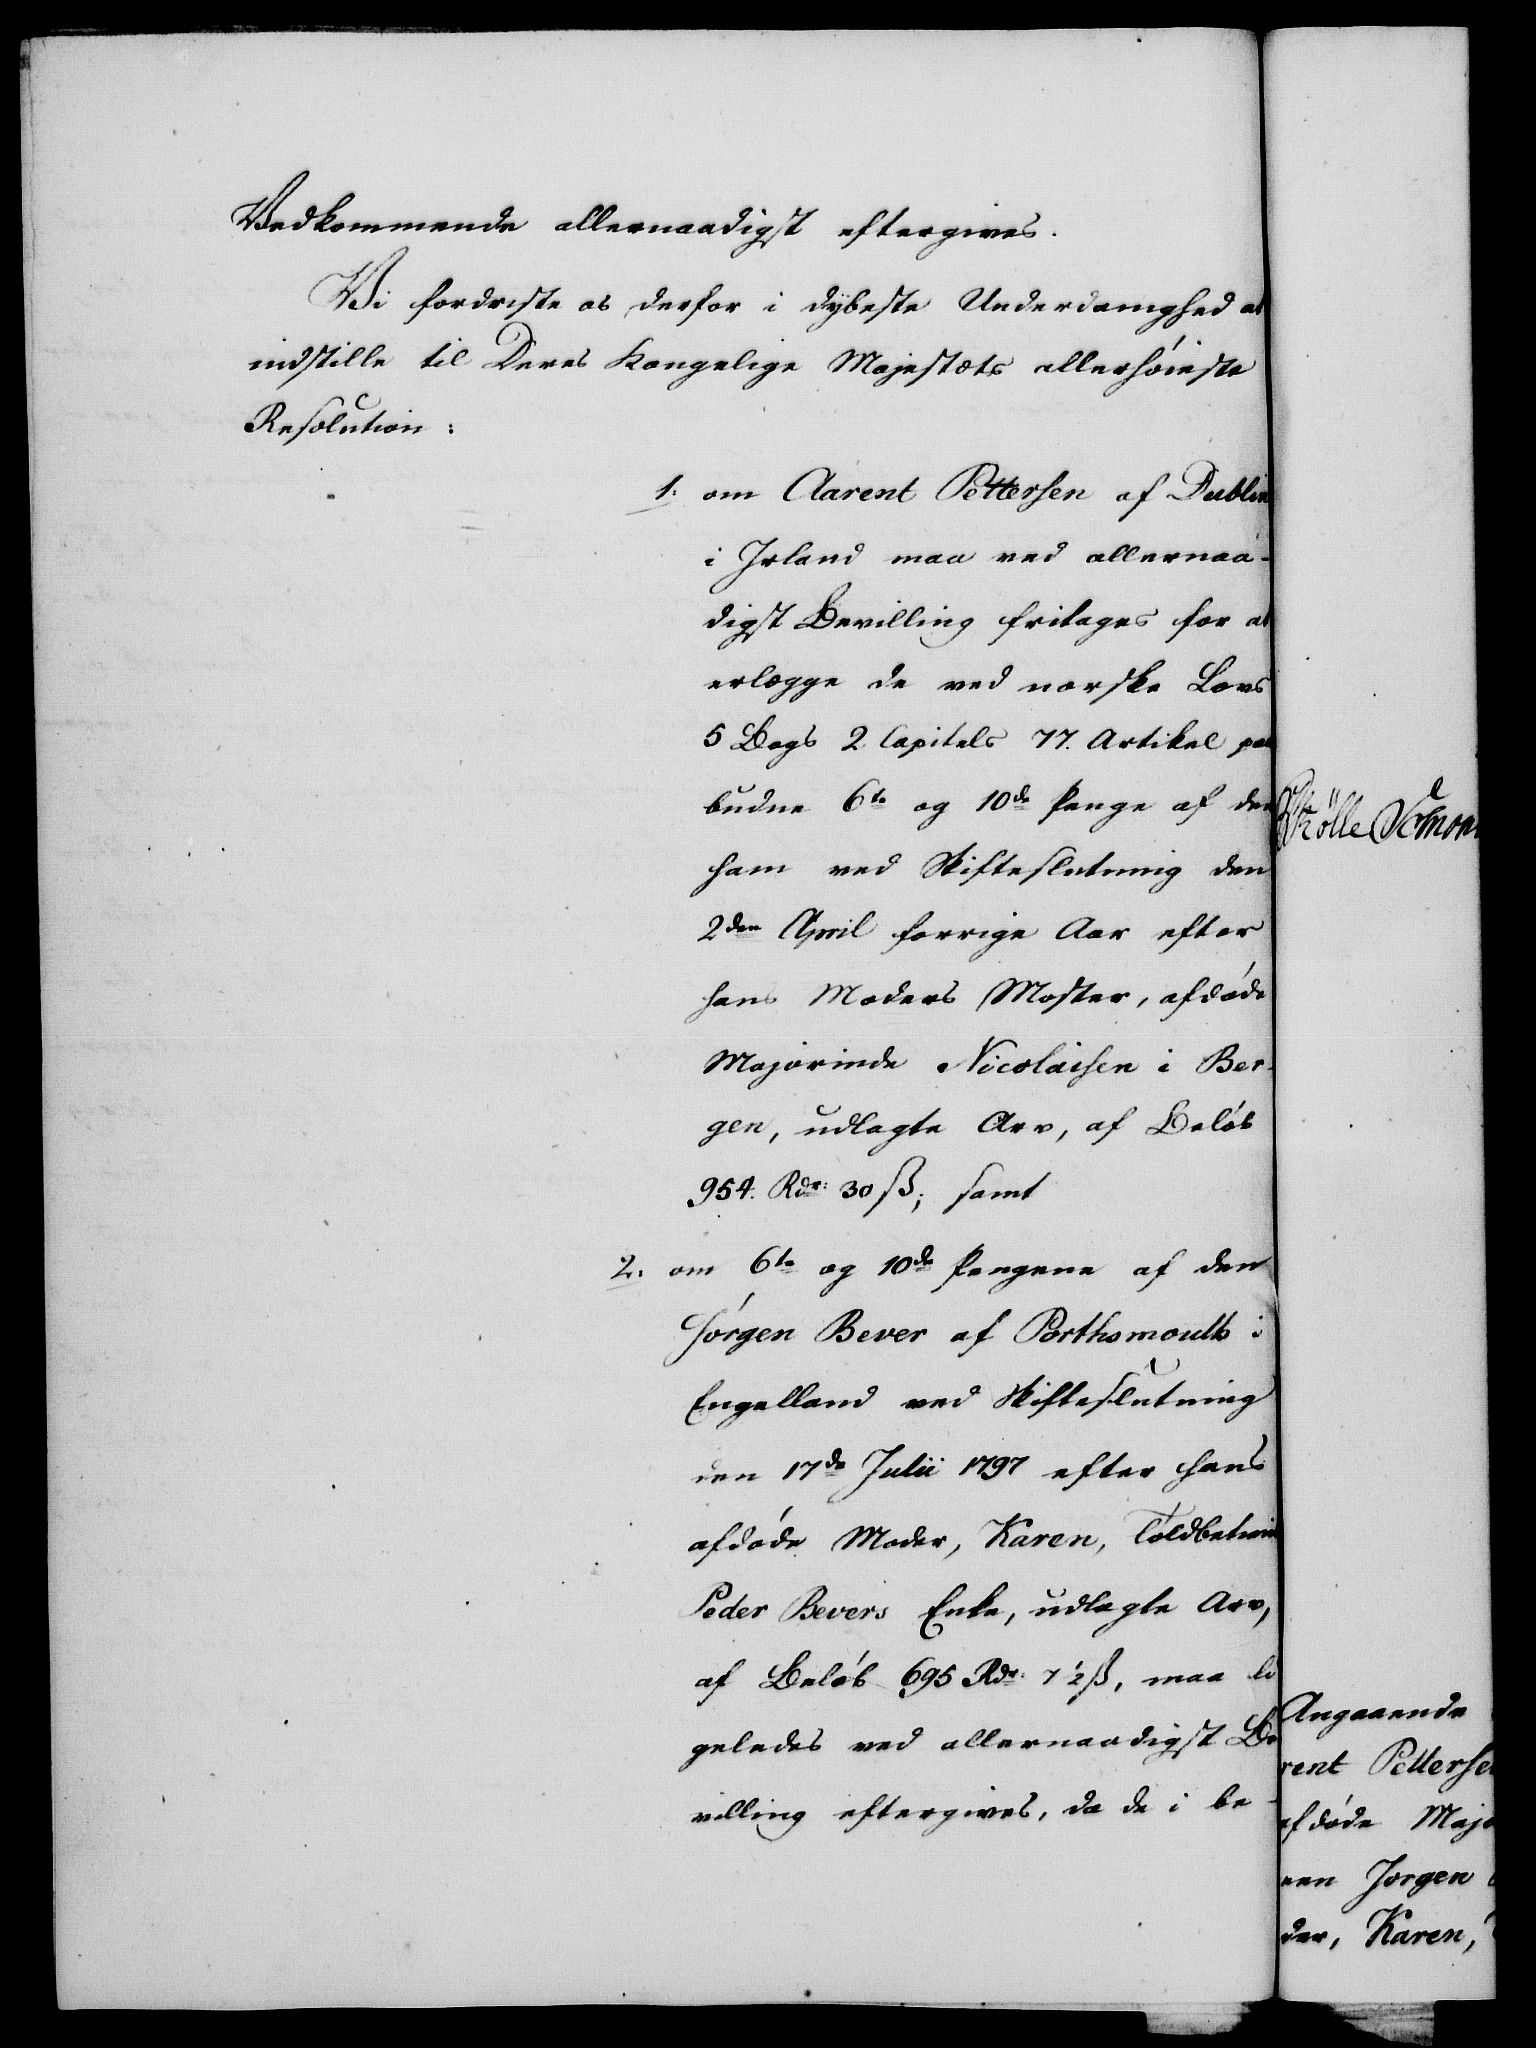 Vedkommende allernaadigst eftergives.
Vi fordriste os derfor i dybeste Underdanighed at
indstille til Deres Kongelige Majestæts allerhöieste
Resolution:
1. om Aarent Pettersen af Dublin
i Irland maa ved allernaa-
digst Bevilling fritages for at
erlægge de ved norske Lovs
5 Bogs 2 Capitels 77. Artikel paa
budne 6te og 10de Penge af den
ham ved Skifteslutning den
2den April forrige Aar efter
hans Moders Moster, afdøde
Majorinde Nicolaisen i Ber-
gen, udlagte Arv, af Beløb
954. Rdr: 30 ß; samt
2. om 6te og 10de Pengene af den
Jørgen Bever af Porthsmouth i
Engelland ved Skifteslutning
den 17de Julii 1797 efter hans
afdøde Moder, Karen, Toldbetient
Peder Bevers Enke, udlagte Arv,
af Beløb 695 Rdr: 7 1/2 ß, maa li
geledes ved allernaadigst Be
villing eftergives, da de i be-
Angaaende
rent Pettersen
afdøde Majo
een Jørgen
der, Karen,